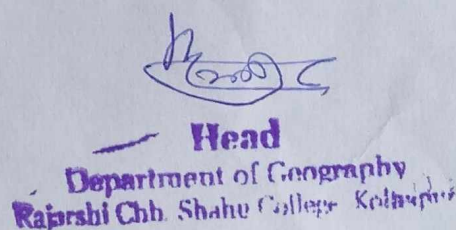 Head
Department of Geography
Rajarshi Chh. Shahu College Kolhapur